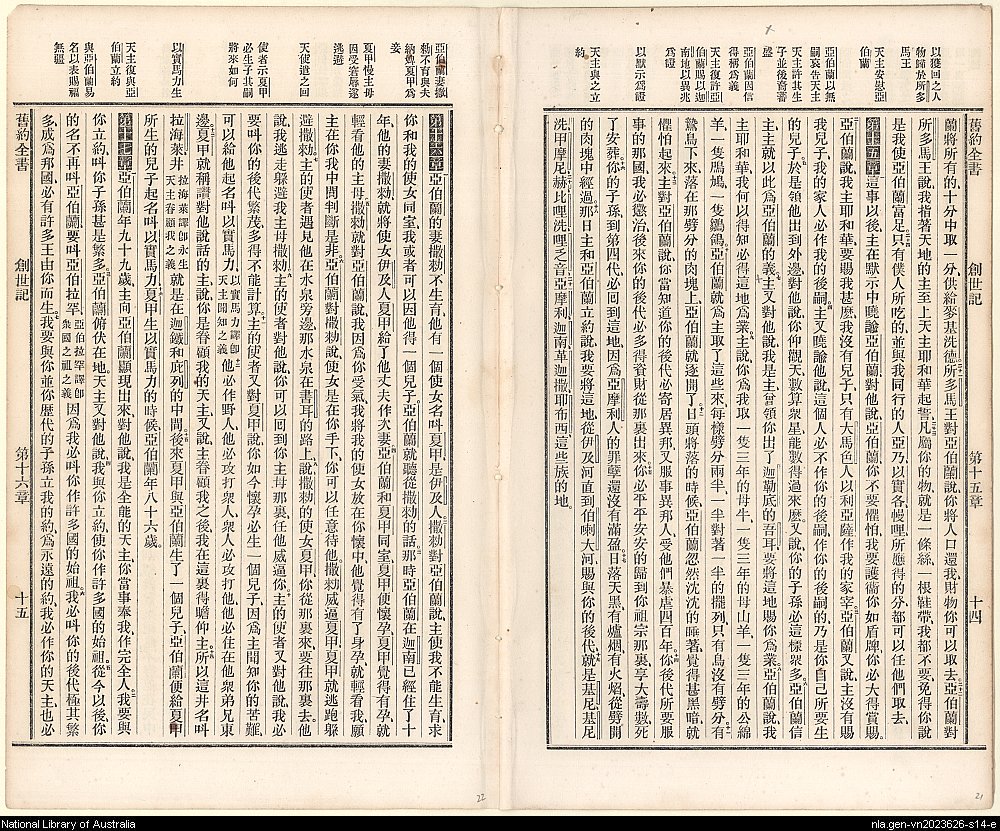 以獲回之人
物歸於所多
馬王
天主安慰亞
伯蘭
亞伯蘭以無
嗣哀告天主
天主許其生
子並後裔蕃
盛
亞伯蘭因信
得稱爲義
天主復許亞
伯蘭賜以迦
南地以異兆
爲證
以默示爲證
天主與之立
約
舊約全書
創世記
第十五章
十四
蘭將所有的十分中取一分供給麥基洗德所多馬王對亞伯蘭說你將人口還我財物你可以取去亞伯蘭對
所多馬王說我指著天地的主至上天主耶和華起誓凡屬你的物就是一條絲一根鞋帶我都不要免得你說
是我使亞伯蘭富足只有僕人所吃的並與我同行的人亞乃以實各幔哩所應得的分都可以任他們取去
第十五章這事以後主在默示中曉諭亞伯蘭對他說亞伯蘭你不要懼怕我要護衞你如盾牌你必大得賞賜
亞伯蘭說我主耶和華要賜我甚麽我沒有兒子只有大馬色人以利亞薩作我的家宰亞伯蘭又說主沒有賜
我兒子我的家人必作我的後嗣主又曉諭他說這個人必不作你的後嗣作你的後嗣的乃是你自己所要生
的兒子於是領他出到外邊對他說你仰觀天數算衆星能數得過來麽又說你的子孫必這樣衆多亞伯蘭信
主主就以此爲亞伯蘭的義主又對他說我是主曾領你出了迦勒底的吾耳要將這地賜你爲業亞伯蘭說我
主耶和華我何以得知必得這地爲業主說你爲我取一隻三年的母牛一隻三年的母山羊一隻三年的公綿
羊一隻鳲鳩一隻鶵鴿亞伯蘭就爲主取了這些來每樣劈分兩半一半對著一半的擺列只有鳥沒有劈分有
鷙鳥下來落在那劈分的肉塊上亞伯蘭就逐開了日頭將落的時候亞伯蘭忽然沈沈的睡著覺得甚黑暗就
懼怕起來主對亞伯蘭說你當知道你的後代必寄居異邦又服事那邦的人受他們暴虐四百年你後代所要服
事的那國我必懲治後來你的後代必多得資財從那裏出來你必平平安安的歸到你祖宗那裏享大壽數死
了安葬你的子孫到第四代必回到這地因爲亞摩利人的罪孽還沒有滿盈日落天黑有爐烟有火焰從劈開
的肉塊中經過那日主和亞伯蘭立約說我要將這地從伊及河直到伯喇大河賜與你的後代就是基尼基尼
洗甲摩尼赫比哩洗哩乏音亞摩利迦南革迦撒耶布西這些族的地
亞伯蘭妻撒
勑不育與夫
納婢夏甲爲
妾
夏甲慢主母
因受窘辱遂
逃避
天使遣之回
使者示夏甲
必生子北嗣
將來如何
以實馬力生
天主復與亞
伯蘭立約
與亞伯蘭易
名以表賜福
無疆
第十六章亞伯蘭的妻撒勑不生育他有一個使女名叫夏甲是伊及人撒勑對亞伯蘭說主使我不能生育求
你和我的使女同室我或者可以因他得一個兒子亞伯蘭就聽從撒勑的話那時亞伯蘭在迦南已經住了十
年他的妻撒勑就將使女伊及人夏甲給了他丈夫作次妻亞伯蘭和夏甲同室夏甲便懷孕夏甲覺得有孕就
輕看他的主母撒勑就對亞伯蘭說我因爲你受氣我將我的使女放在你懷中他覺得有了身孕就輕看我願
主在你我中間判斷是非亞伯蘭對撒勑說使女是在你手下你可以任意待他撒勑威逼夏甲夏甲就逃跑躱
避撒勑主的使者遇見他在水泉旁邊那水泉在書耳的路上說撒勑的使女夏甲你從那裏來要往那裏去他
說我逃走躱避我主母撒勑主的使者對他說你可以回到你主母那裏任他威逼你主的使者又對他說我必
要叫你的後代繁茂多得不能計算主的使者又對夏甲說你如今懷孕必生一個兒子因爲主聞知你的苦難
可以給他起名叫以實馬力以實馬力譯即天主聞知之義他必作野人他必攻打衆人衆人必攻打他他必住在他衆弟兄東
邊夏甲就稱讚對他說話的主說你是眷顧我的天主又說主眷顧我之後我在這裏得瞻仰主所以這井名叫
拉海萊井拉海萊譯即永生天主眷顧我之義就是在迦鐵和庇列的中間後來夏甲與亞伯蘭生了一個兒子亞伯蘭便給夏甲
所生的兒子起名叫以實馬力夏甲生以實馬力的時候亞伯蘭年八十六歲
第十七章亞伯蘭年九十九歲主向亞伯蘭顯現出來對他說我是全能的天主你當事奉我作完全人我要與
你立約叫你子孫甚是繁多亞伯蘭俯伏在地天主又對他說我與你立約使你作許多國的始祖從今以後你
的名不再叫亞伯蘭要叫亞伯拉罕亞伯拉罕譯即衆國之祖之義因爲我必叫你作許多國的始祖我必叫你的後代極其繁
多成爲那國必有許多王由你而生我要與你並你歷代的子孫立我的約爲永遠的約我必作你的天主也必
舊約全書
創世記
第十六章
十五
21
22
National Library of Australia
nla.gen-vn2023626-s14-e